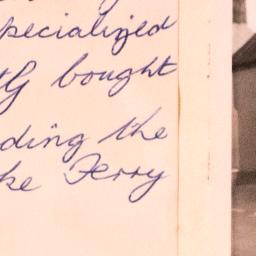 specialized
tly bought
ding the
ke Ferry